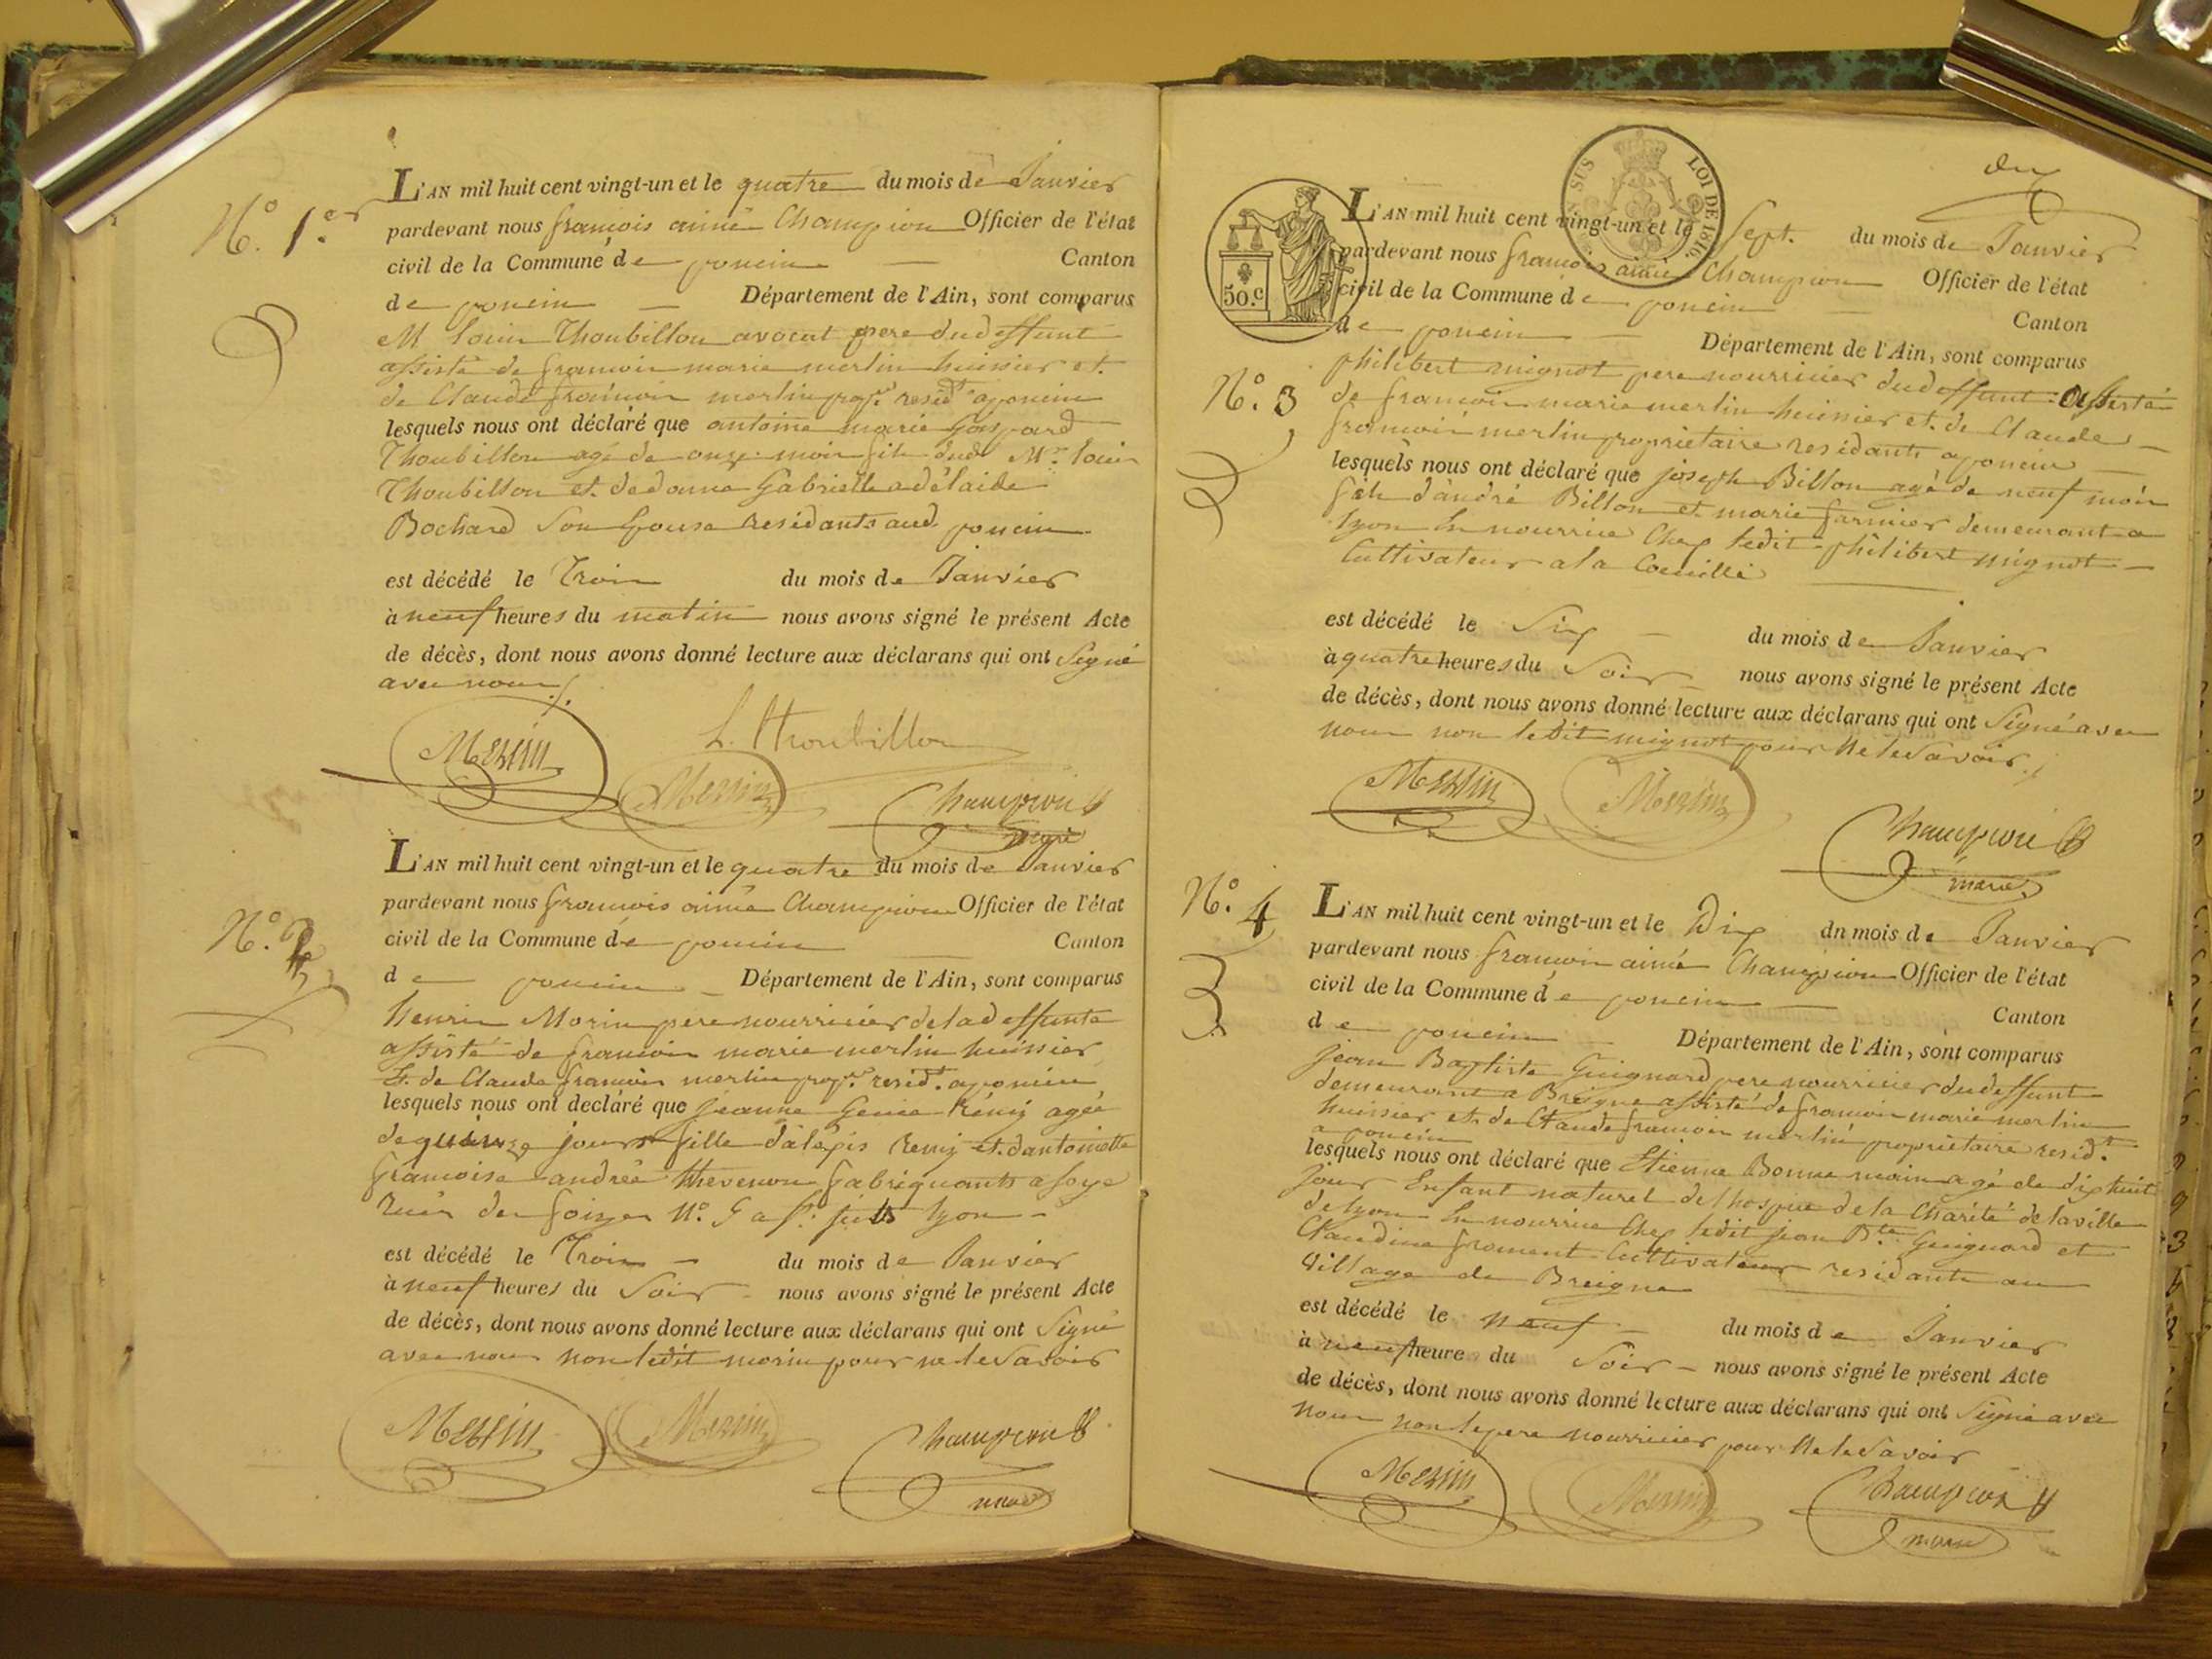 N.° 1.er
L'AN mil huit cent vingt-un et le quatre du mois de Janvier
pardevant nous françois aimé Champion Officier de l'état
civil de la Commune de poncin Canton
de poncin Département de l'Ain, sont comparus
M louis Thoubillon avocat pere dudeffunt
assisté de francois marie merlin huissier et.
de Claude francois merlin prop.re resid.t aponcin
lesquels nous ont déclaré que antoine marie Gaspard
Thoubillon agé de onze mois fils dud. Mr. louis
Thoubillon et. dedame Gabrielle adélaide
Bochard son Epouse residants aud. poncin
est décédé le Trois du mois de Janvier
à neuf heures du matin nous avons signé le présent Acte
de décès, dont nous avons donné lecture aux déclarans qui ont Signé
avec nous
Merlin L. Thoubillon
Merlin Champion
maire
N.° 2
L'AN mil huit cent vingt-un et le quatre du mois de Janvier
pardevant nous françois aimé Champion Officier de l'état
civil de la Commune de poncin Canton
de poncin Département de l'Ain, sont comparus
henri Morin pere nourricier deladeffunte
assisté de francois marie merlin huissier
Et. de Claude francois merlin prop.re resid.t aponcin
lesquels nous ont declaré que jeanne Remy agée
de quinze jours fille Remy et. dantoinette
francoise andrée thevenon fabriquants
N.° lyon
est décédé le Trois du mois de Janvier
à neuf heures du Soir nous avons signé le présent Acte
de décès, dont nous avons donné lecture aux déclarans qui ont Signé
avec nous non ledit morin pour ne le Savoir
Merlin Merlin Champion
maire
SUS LOI DE 1816.
50.c
L'AN mil huit cent vingt-un et le Sept. du mois de Janvier
pardevant nous françois aimé Champion Officier de l'état
civil de la Commune de poncin Canton
de poncin Département de l'Ain, sont comparus
philibert mignot pere nourricier dudeffunt. assisté
N.° 3
de francois marie merlin huissier et. de Claude
francois merlin proprietaire residants aponcin
lesquels nous ont déclaré que joseph Billon agé de neuf mois
fils d'andré Billon et. marie farnier demeurant a
lyon En nourrice Chez ledit philibert mignot
Cultivateur ala
est décédé le Six du mois de Janvier
à quatre heures du Soir nous avons signé le présent Acte
de décès, dont nous avons donné lecture aux déclarans qui ont Signé avec
nous non ledit mignot pour ne le Savoir
Merlin Merlin
Champion
maire
N.° 4
L'AN mil huit cent vingt-un et le Dix dn mois de Janvier
pardevant nous francois aimé Champion Officier de l'état
civil de la Commune de poncin Canton
de poncin Département de l'Ain, sont comparus
jean Baptiste Guignard pere nourricier dudeffunt
demeurant a Breigne assisté de francois marie merlin
huissier et. de Claude francois merlin proprietaire resid.t
a poncin
lesquels nous ont déclaré que Etienne Bonne main agé de dix huit
jour Enfant naturel de lhospice de la Charité de laville
de lyon En nourrice Chez ledit jean B.te Guignard et
Claudine froment Cultivateur residants au
village de Breigne
est décédé le neuf du mois de Janvier
à neuf heure du Soir nous avons signé le présent Acte
de décès, dont nous avons donné lecture aux déclarans qui ont Signé avec
nous non le pere nourricier pour ne le Savoir
Merlin Merlin Champion
maire